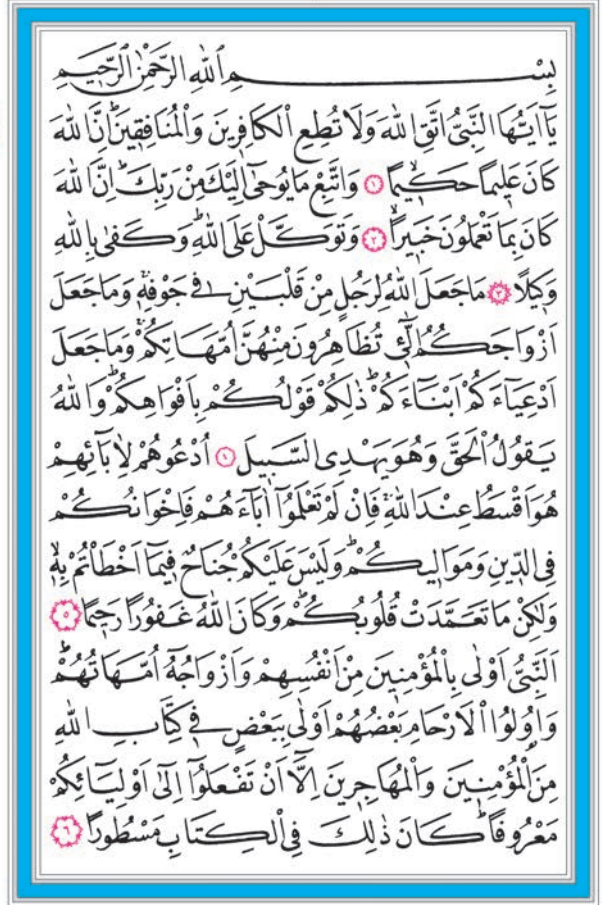 بِسْمِ اللّٰهِ الرَّحْمٰنِ الرَّح۪يمِ
يَٓا اَيُّهَا النَّبِيُّ اتَّقِ اللّٰهَ وَلَا تُطِعِ الْكَافِر۪ينَ وَالْمُنَافِق۪ينَۜ اِنَّ اللّٰهَ
كَانَ عَل۪يمًا حَك۪يمًاۙ ﴿١﴾ وَاتَّبِعْ مَا يُوحٰٓى اِلَيْكَ مِنْ رَبِّكَۜ اِنَّ اللّٰهَ
كَانَ بِمَا تَعْمَلُونَ خَب۪يرًاۙ ﴿٢﴾ وَتَوَكَّلْ عَلَى اللّٰهِۜ وَكَفٰى بِاللّٰهِ
وَك۪يلًا ﴿٣﴾ مَا جَعَلَ اللّٰهُ لِرَجُلٍ مِنْ قَلْبَيْنِ ف۪ي جَوْفِه۪ۚ وَمَا جَعَلَ
اَزْوَاجَكُمُ الّٰٓـ۪ٔي تُظَاهِرُونَ مِنْهُنَّ اُمَّهَاتِكُمْۚ وَمَا جَعَلَ
اَدْعِيَٓاءَكُمْ اَبْنَٓاءَكُمْۜ ذٰلِكُمْ قَوْلُكُمْ بِاَفْوَاهِكُمْۜ وَاللّٰهُ
يَقُولُ الْحَقَّ وَهُوَ يَهْدِي السَّب۪يلَ ﴿٤﴾ اُدْعُوهُمْ لِاٰبَٓائِهِمْ
هُوَ اَقْسَطُ عِنْدَ اللّٰهِۚ فَاِنْ لَمْ تَعْلَمُٓوا اٰبَٓاءَهُمْ فَاِخْوَانُكُمْ
فِي الدّ۪ينِ وَمَوَال۪يكُمْۜ وَلَيْسَ عَلَيْكُمْ جُنَاحٌ ف۪يمَٓا اَخْطَأْتُمْ بِه۪ۙ
وَلٰكِنْ مَا تَعَمَّدَتْ قُلُوبُكُمْۜ وَكَانَ اللّٰهُ غَفُورًا رَح۪يمًا ﴿٥﴾
اَلنَّبِيُّ اَوْلٰى بِالْمُؤْمِن۪ينَ مِنْ اَنْفُسِهِمْ وَاَزْوَاجُهُٓ اُمَّهَاتُهُمْۜ
وَاُو۬لُوا الْاَرْحَامِ بَعْضُهُمْ اَوْلٰى بِبَعْضٍ ف۪ي كِتَابِ اللّٰهِ
مِنَ الْمُؤْمِن۪ينَ وَالْمُهَاجِر۪ينَ اِلَّٓا اَنْ تَفْعَلُٓوا اِلٰٓى اَوْلِيَٓائِكُمْ
مَعْرُوفًاۜ كَانَ ذٰلِكَ فِي الْكِتَابِ مَسْطُورًا ﴿٦﴾